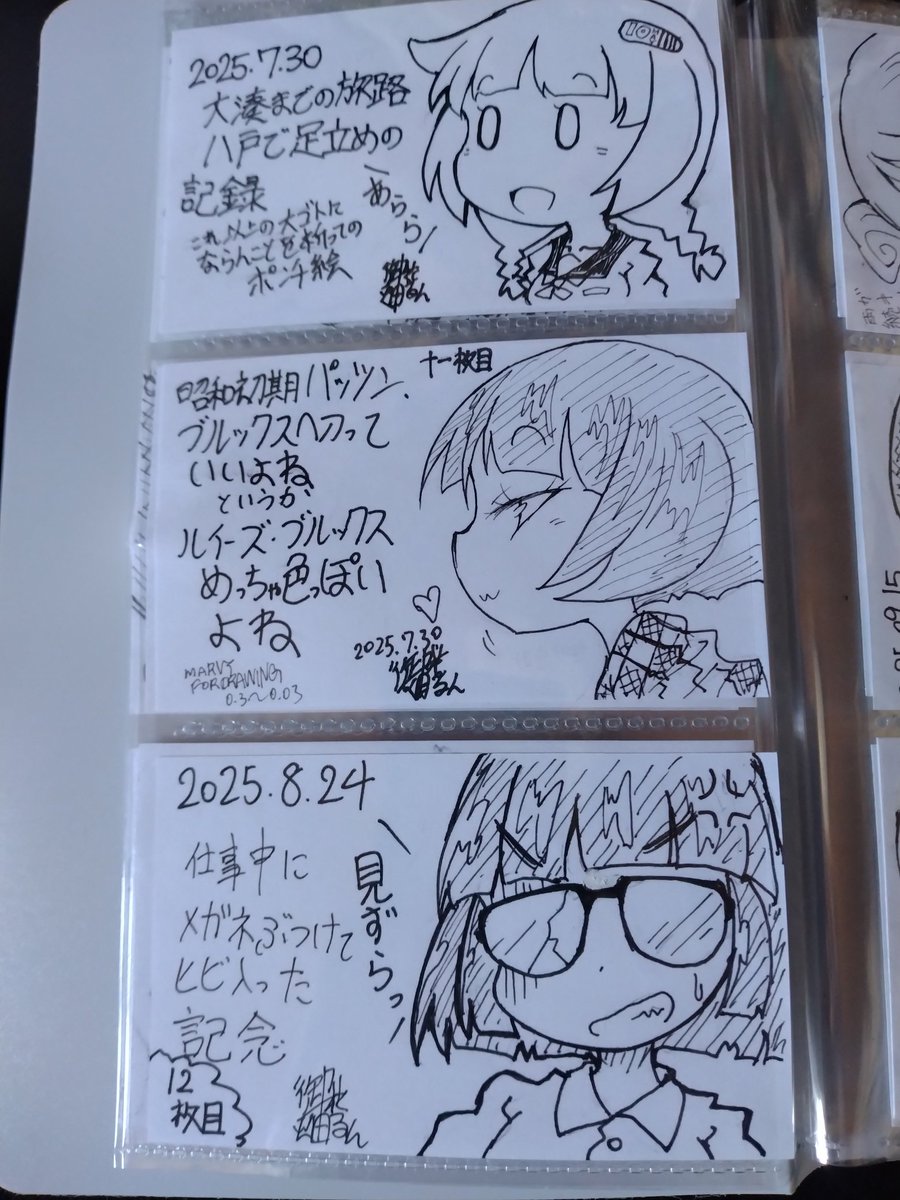 2025.7.30
大湊までの旅路
八戸で足立めの
記録
これ以上の大ゴトに
ならんことを祈っての
ポンチ絵
あらら
十一枚目
昭和初期パッツン、
ブルックスヘアって
いいよね
というか、
ルイーズ・ブルックス
めっちゃ色っぽい
よね
2025.7.30
MARVY
FOR DRAWING
0.3〜0.03
2025.8.24
仕事中に
メガネぶつけて
ヒビ入った
記念
12
枚目
見ずらっ